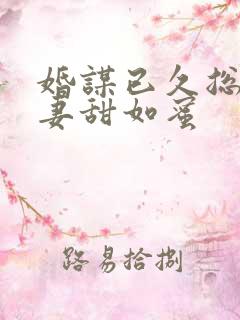 婚謀已久总
妻甜如蜜
路易拾捌